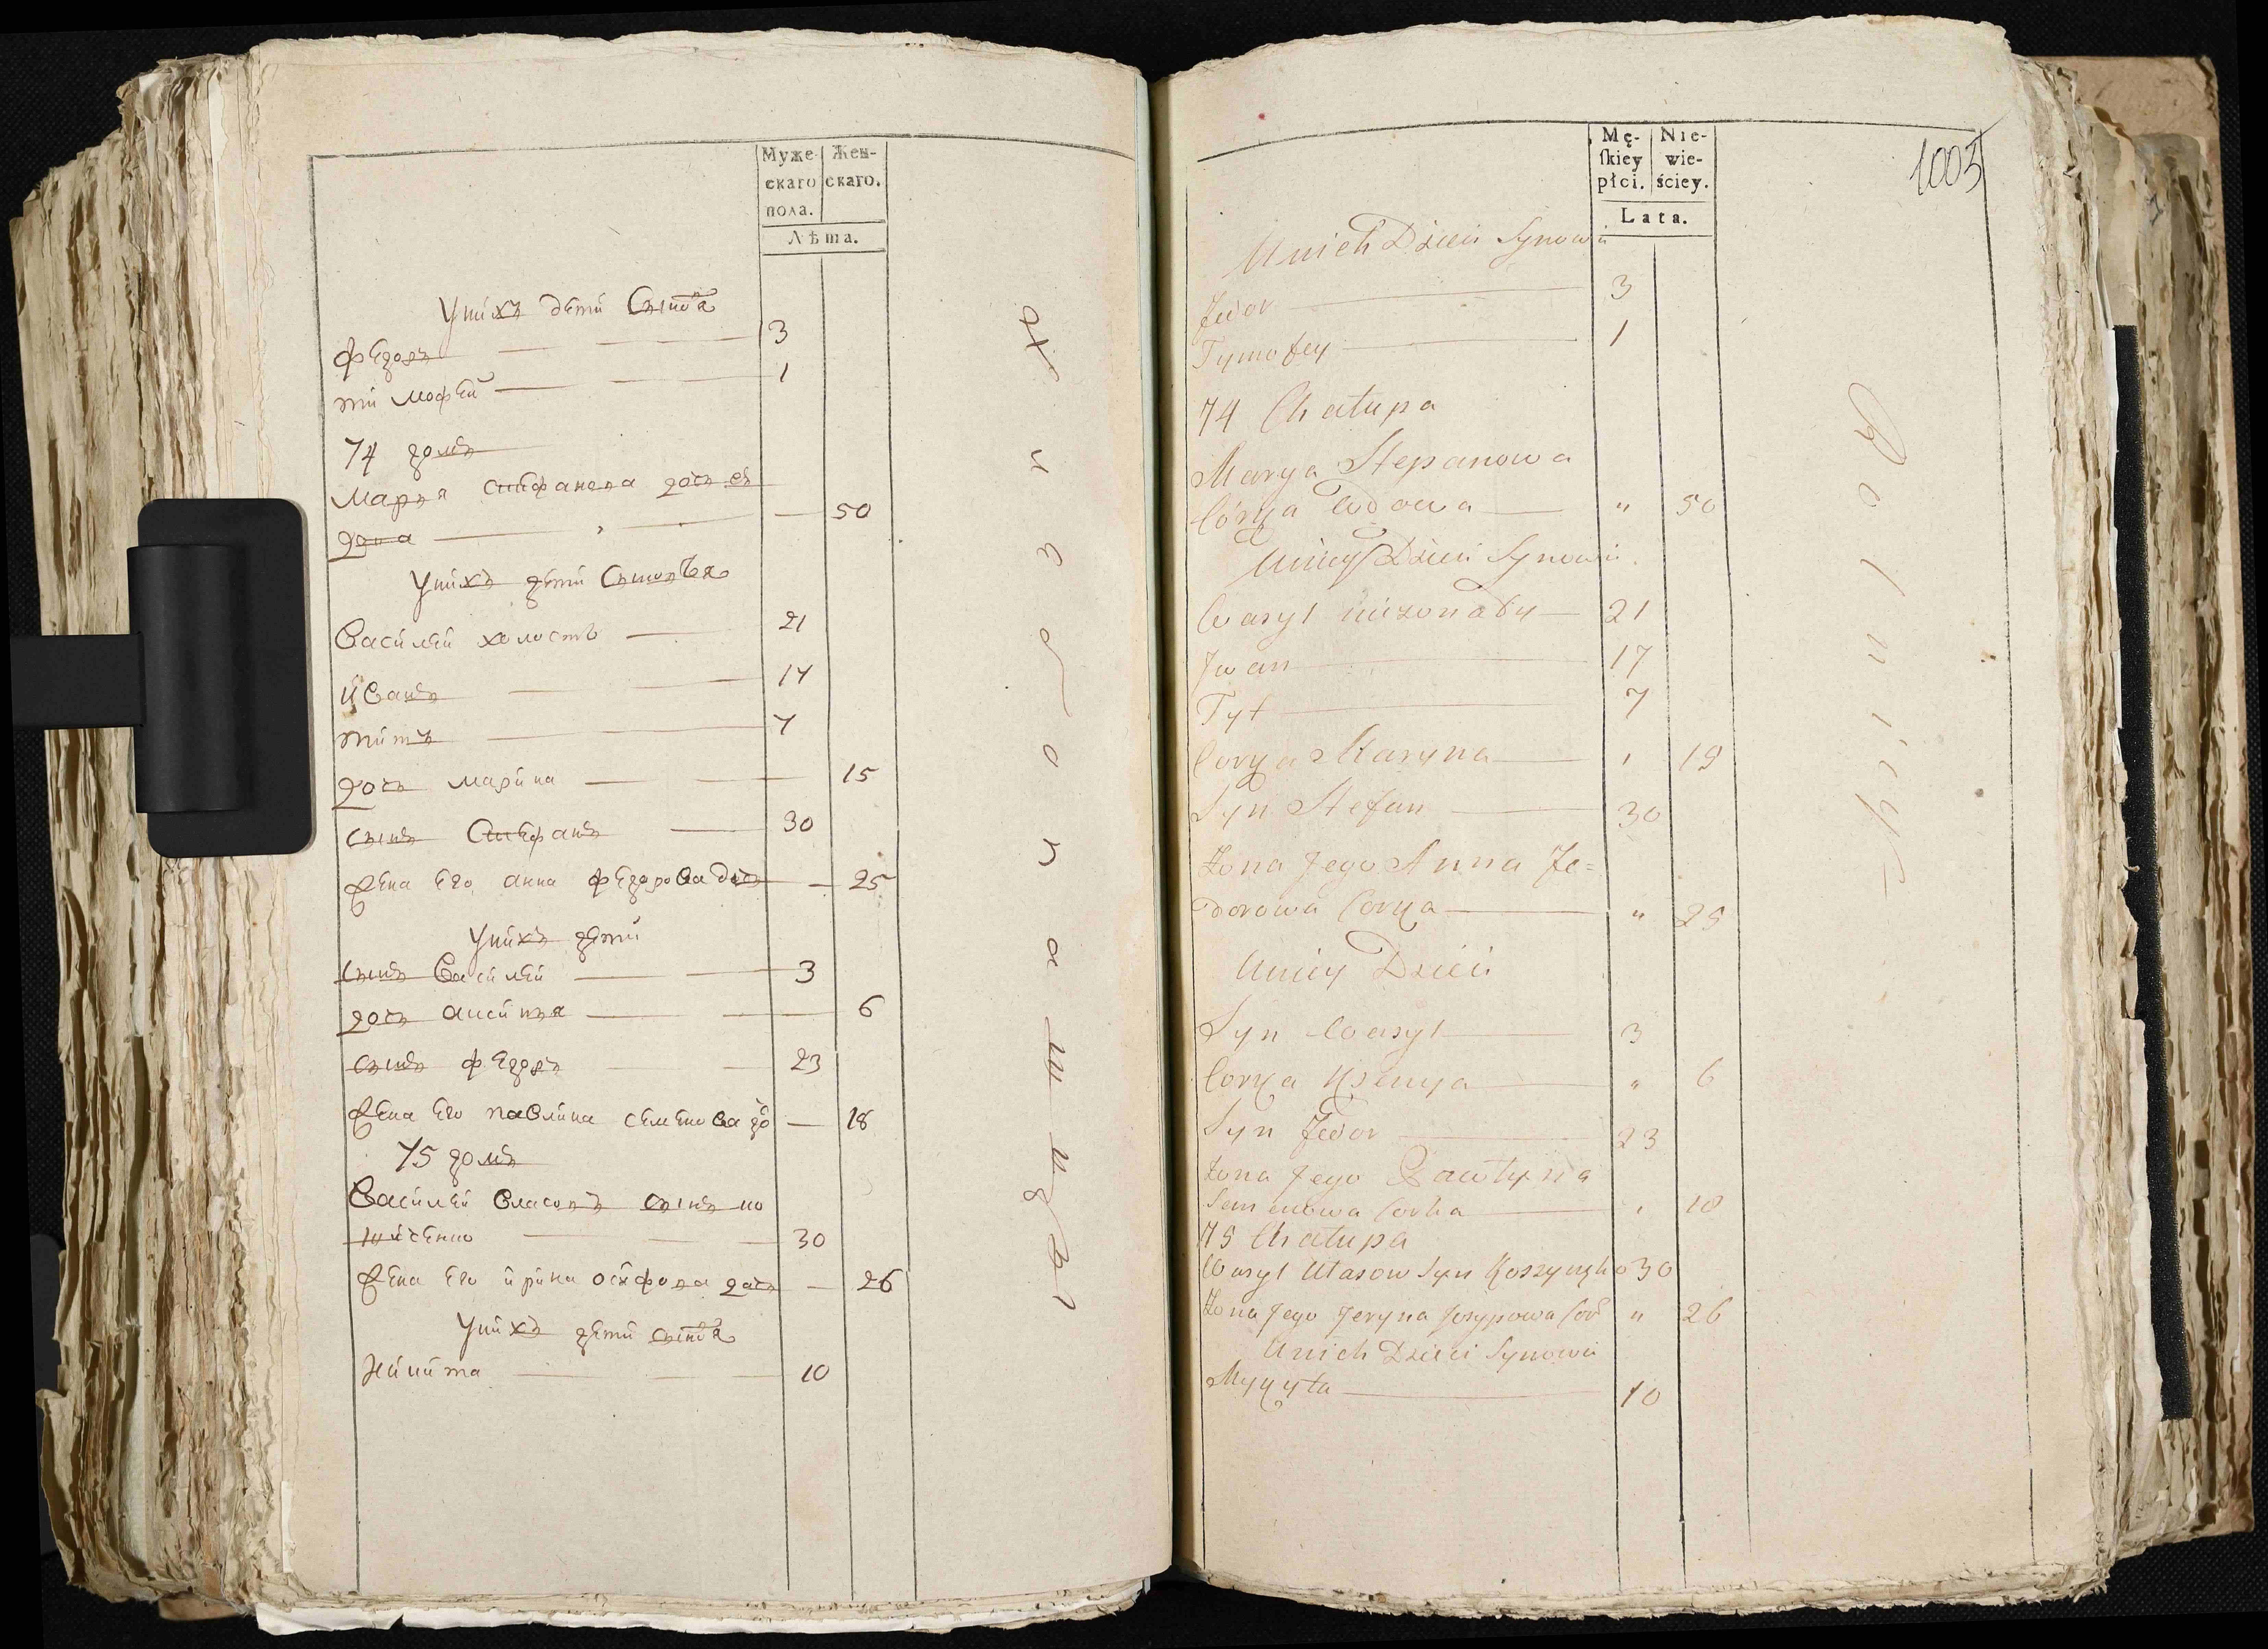 Муже-
скаго
пола.
Жен-
скаго.
Лѣта.
Унихъ дети Сынов̾я
Федоръ 3
тимофей 1
74 домъ
Маръя Стефанова дочь в
дова 50
Унихъ дети Сыновья
Василей холостъ 21
иванъ 17
титъ 7
дочь марина 15
сынъ Стефанъ 30
жена его анна федорова дочь 25
Унихъ дети
сынъ Василей 3
дочь аксинья 6
сынъ федоръ 23
жена его павлина семенова до 18
75 домъ
Василей Власовъ сынъ ко
30
жена его ирина осифова дочь 26
Унихъ дети сынов̾я
Никита 10
Mę-
ſkiey
płci.
Nie-
wie-
ściey.
Lata.
1003
Unich Dzieci Synowi
Fedor 3
Tymofey 1
74 Chatupa
Marya Stepanowa
Córka Wdowa " 50
Uniey Dzieci Synowi
Wasyl niezonaty 21
Jwan 17
Tyt 7
Corka Maryna 15
Syn Stefan 30
Zona Jego Anna Fe=
dorowa Corka " 25
Uniey Dzieci
Syn Wasyl 3
Corka Ksenya " 6
Syn Fedor 23
Zona Jego Pawlyna
Semenowa Corka 18
75 Chatupa
Wasyl Własow Syn 30
Zona Jego Jeryna Josypowa Cor " 26
Unich Dzieci Synowi
Mykyta 10